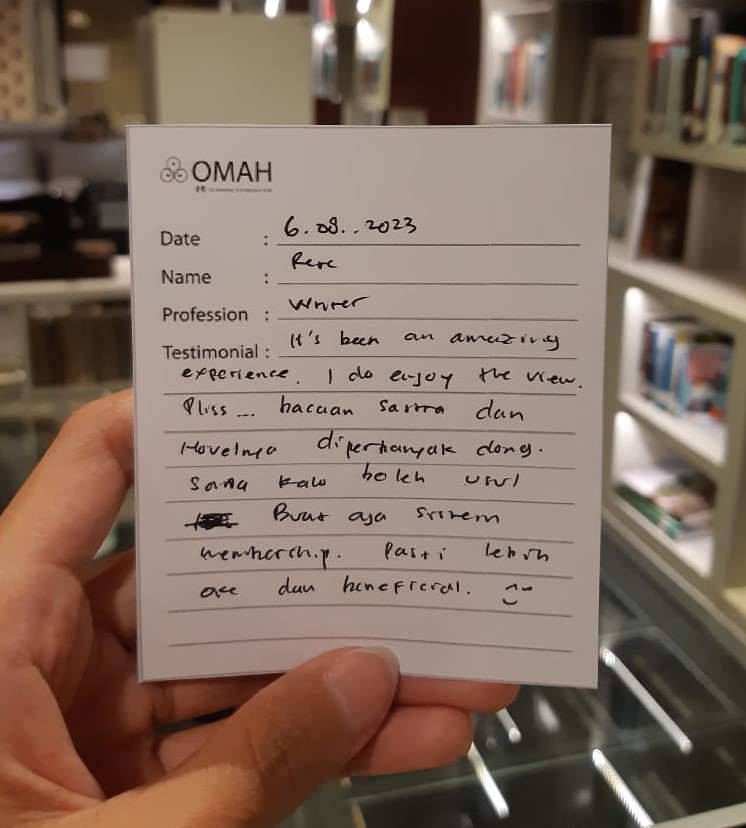 OMAH
Date : 6.08..2023
Name : Rere
Profession : Writer
Testimonial : It's been an amazing
experience. I do enjoy the view.
Pliss ... bacaan sastra dan
Novelnya diperbanyak dong.
Sama kalo boleh usul
Buat aja sistem
membership. Pasti lebih
oke dan beneficial.